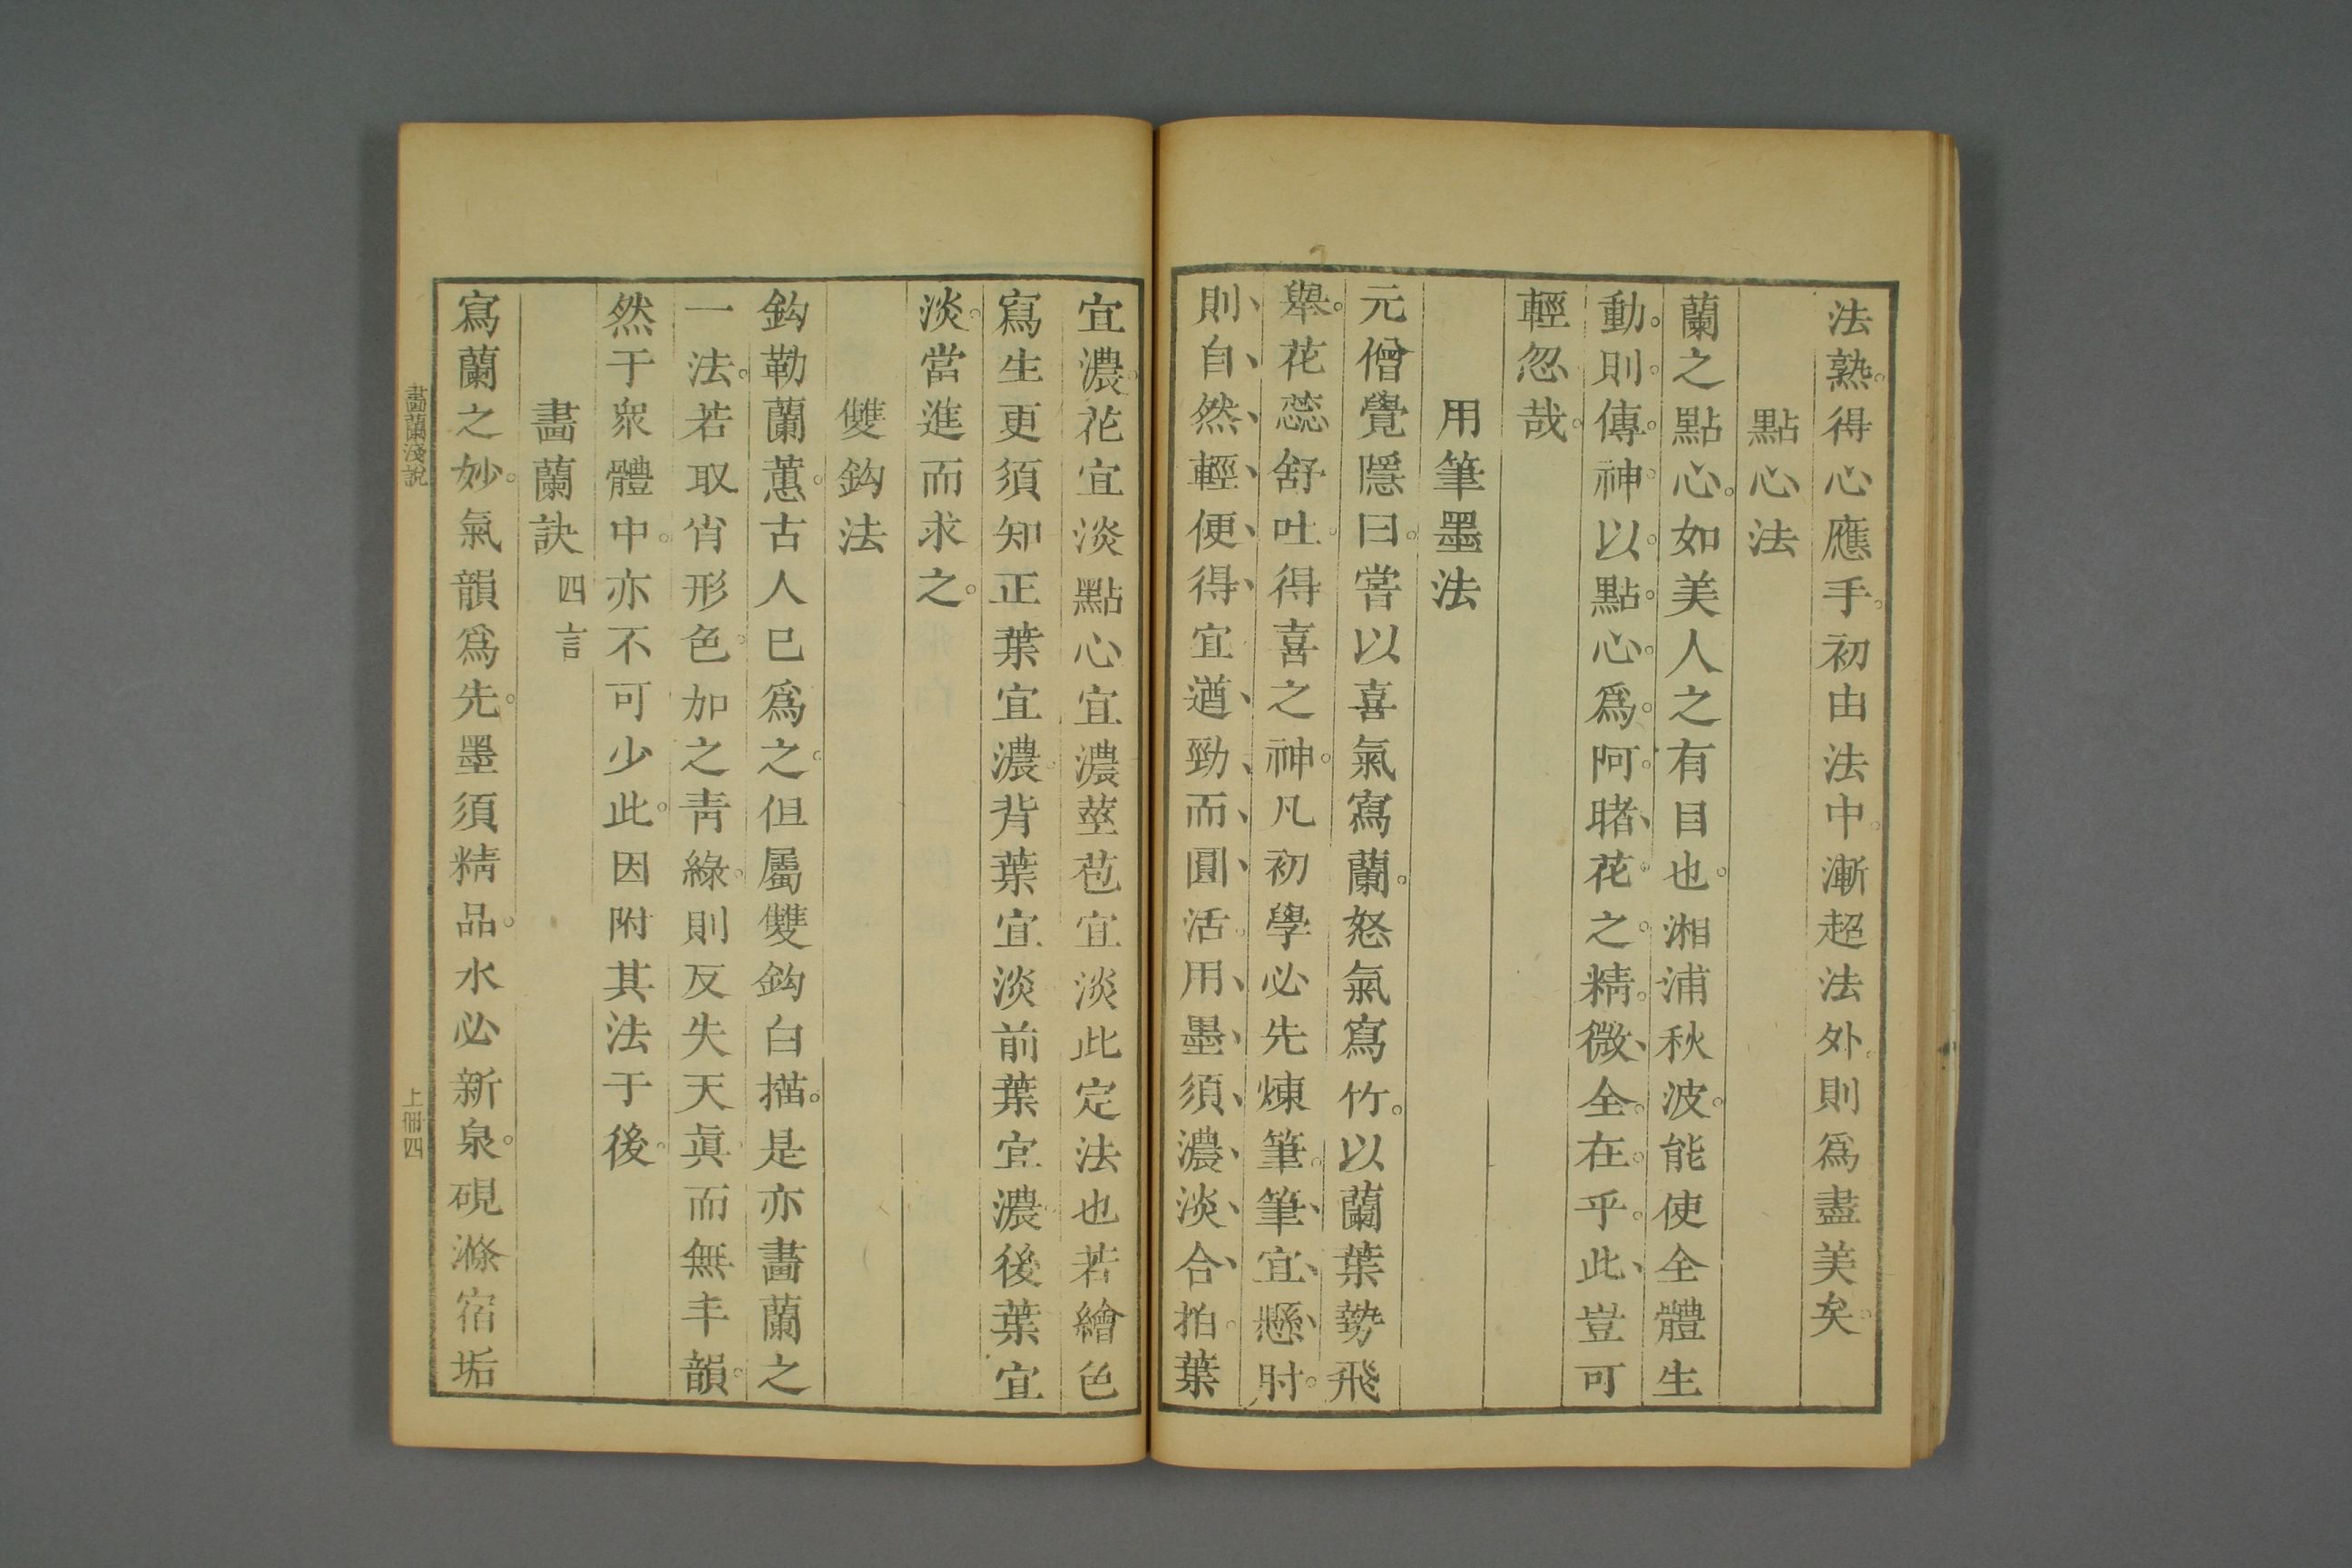 法熟。得心應手。初由法中。漸超法外。則爲盡美矣。
點心法
蘭之點心。如美人之有目也。湘浦秋波。能使全體生
動。則傳神以點心爲阿睹。花之精微。全在乎此。豈可
輕忽哉。
用筆墨法
元僧覺隱曰。嘗以喜氣寫蘭。怒氣寫竹。以蘭葉勢飛
舉。花蕊舒吐。得喜之神。凡初學必先煉筆。筆宜懸肘。
則自然輕便得宜遒勁而圓活。用墨須濃淡合拍。葉
宜濃。花宜淡點心宜濃莖苞宜淡此定法也若繪色
寫生更須知正葉宜濃。背葉宜淡前葉宜濃。後葉宜
淡。當進而求之。
雙鈎法
鈎勒蘭蕙。古人巳爲之。但屬雙鈎白描。是亦畵蘭之
一法。若取肖形色。加之靑綠。則反失天眞。而無丰韻。
然于衆體中。亦不可少此。因附其法于後。
畵蘭訣 四言
寫蘭之妙。氣韻爲先。墨須精品。水必新泉。硯滌宿垢
畵蘭淺說
上冊四